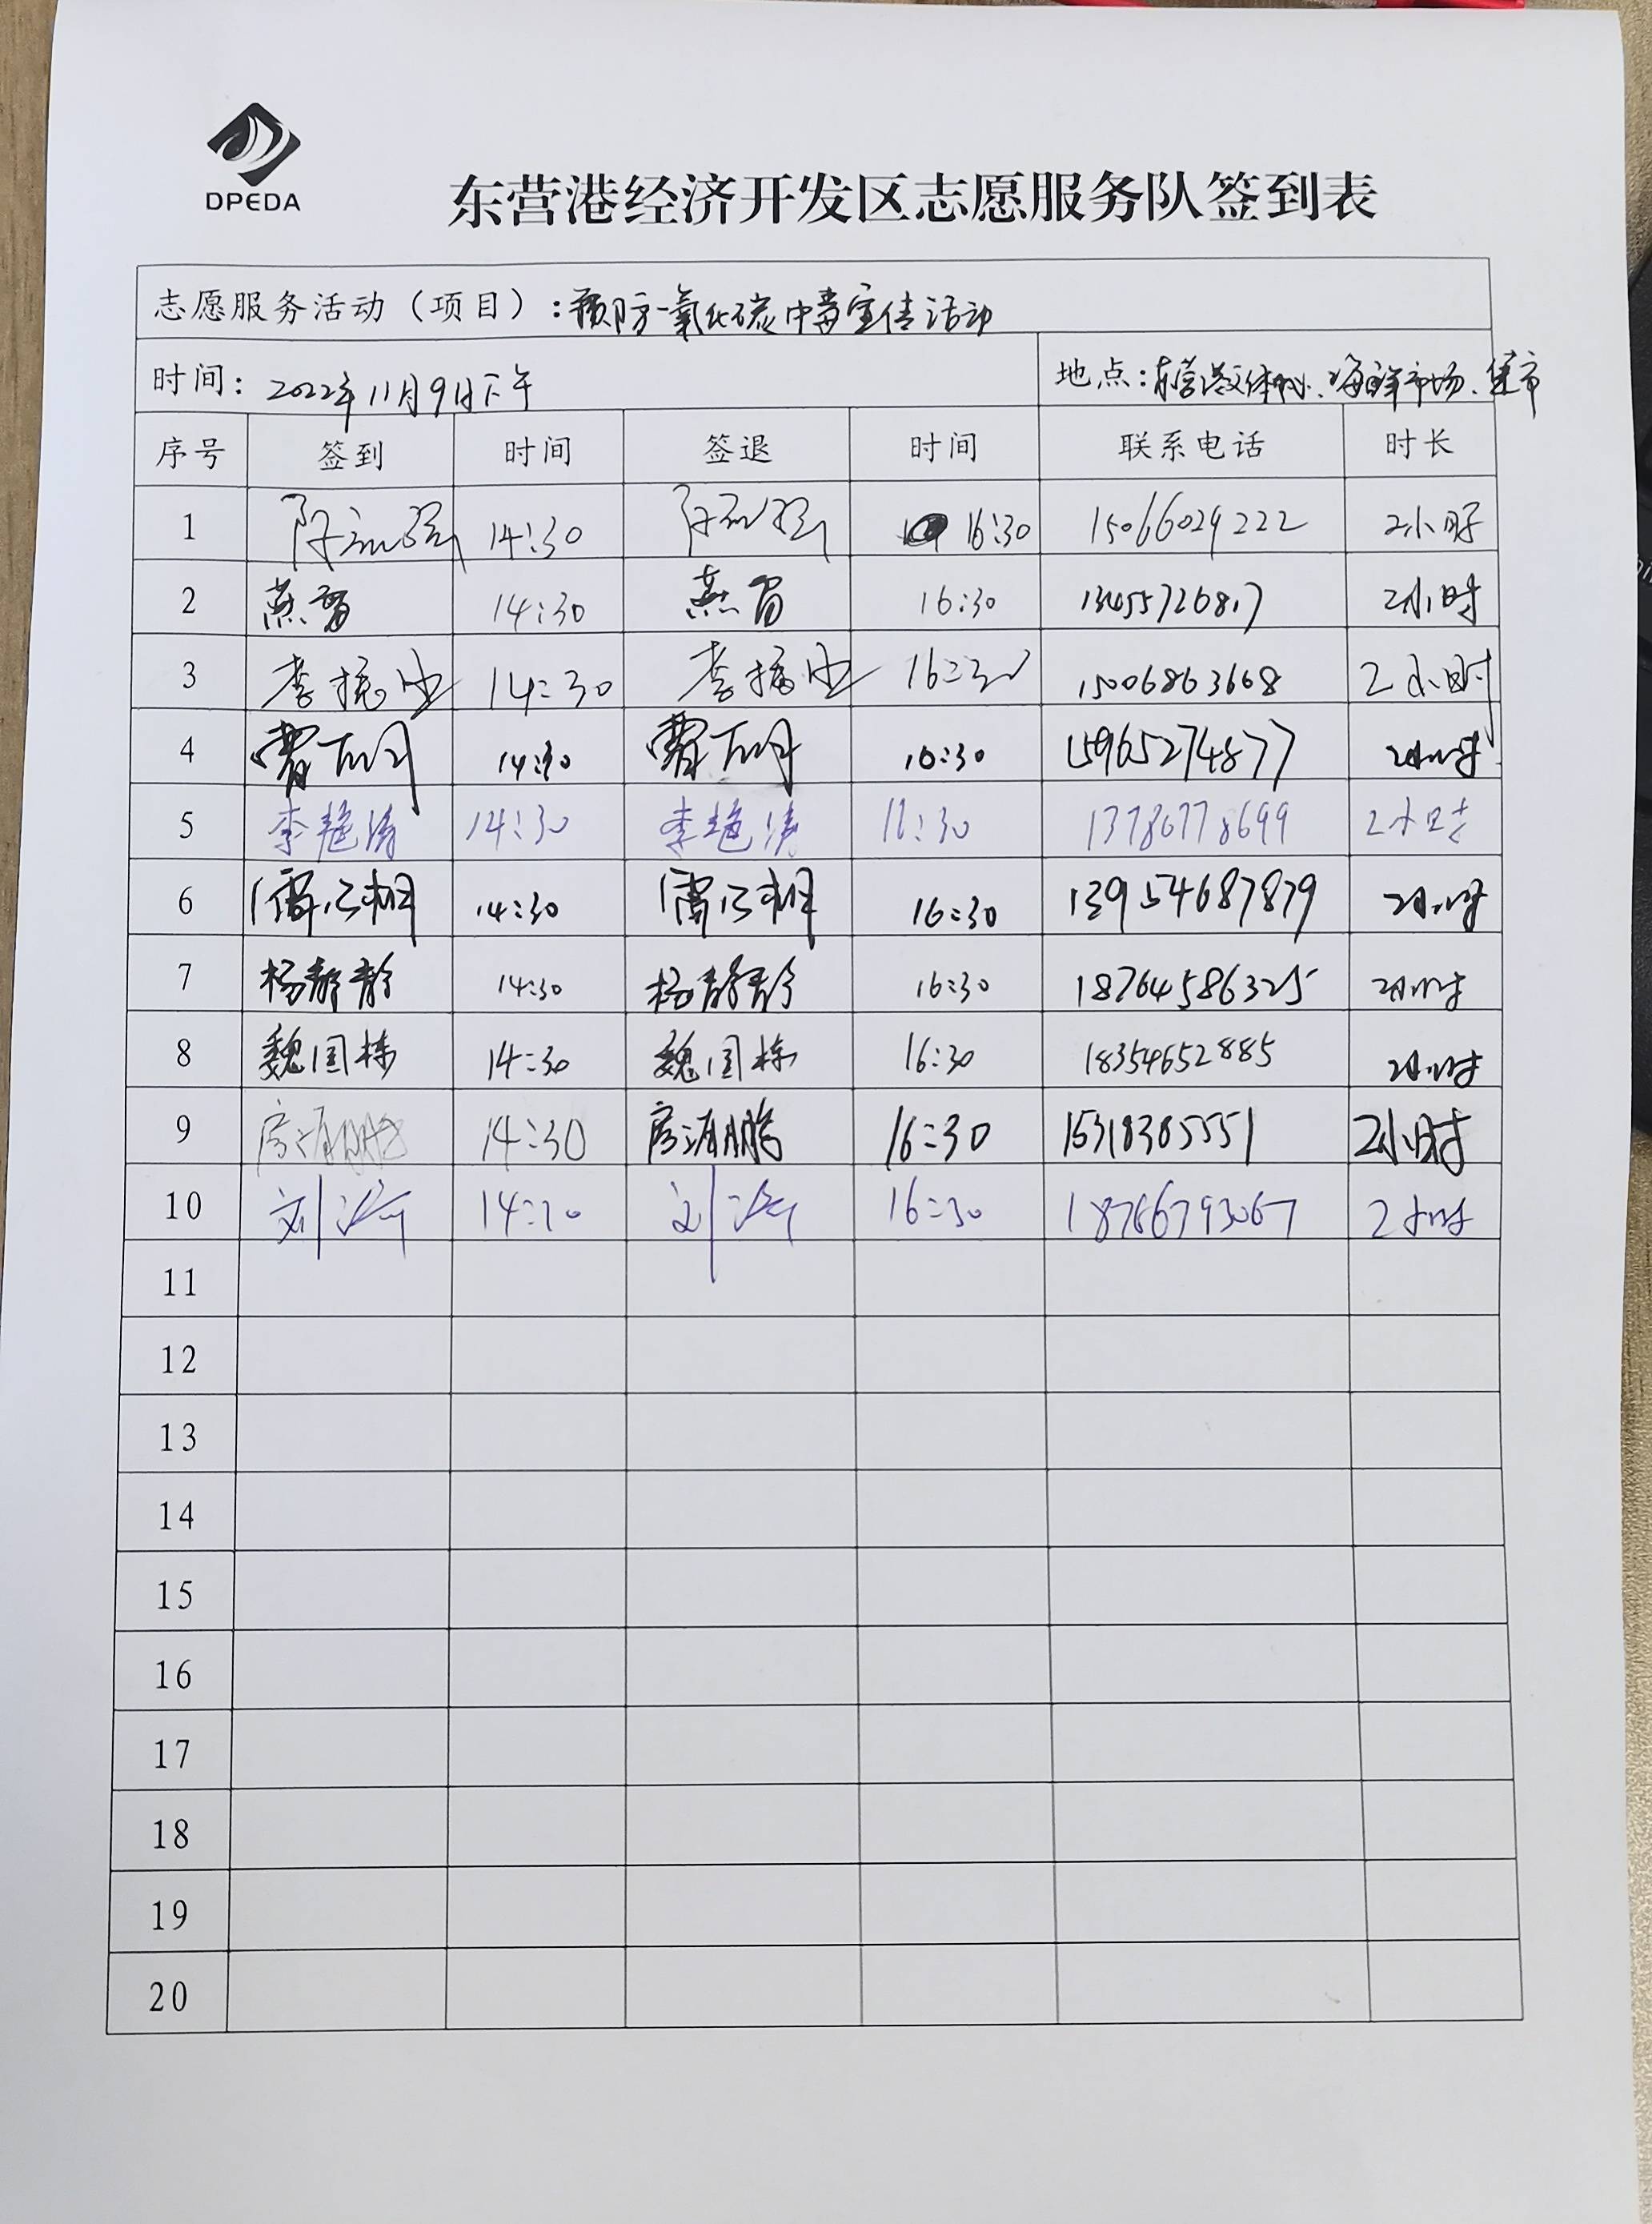 DPEDA
东营港经济开发区志愿服务队签到表
志愿服务活动（项目）：预防一氧化碳中毒宣传活动
时间：2022年11月9日下午 地点：东营港文体中心、海鲜市场、集市
序号 签到 时间 签退 时间 联系电话 时长
1 14:30 16:30 15066029222 2小时
2 燕 14:30 燕 16:30 2小时
3 李振 14:30 李振 16:30 15006863668 2小时
4 费 14:30 费 16:30 15965274877 2小时
5 李艳涛 14:30 李艳涛 16:30 2小时
6 14:30 16:30 13954687879 2小时
7 杨静静 14:30 杨静静 16:30 18764586325 2小时
8 魏国栋 14:30 魏国栋 16:30 18354652885 2小时
9 房海鹏 14:30 房海鹏 16:30 15318385551 2小时
10 刘 14:30 刘 16:30 18766793067 2小时
11
12
13
14
15
16
17
18
19
20